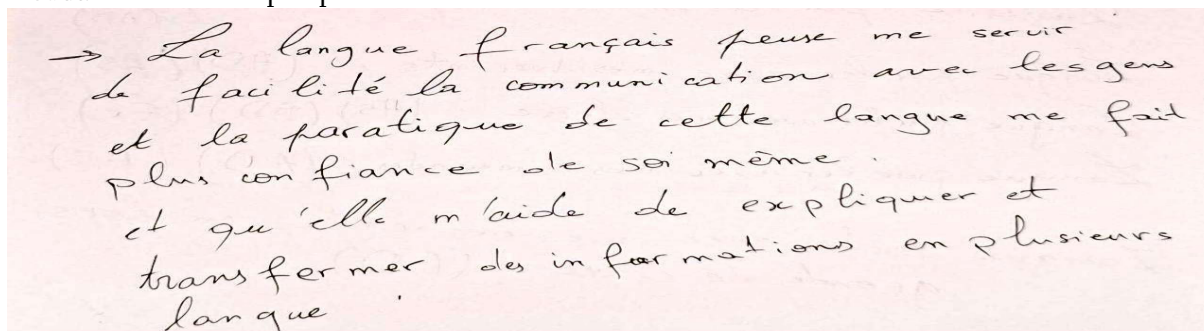 → La langue français peuse me servir
de facilité la communication avec lesgens
et la paratique de cette langue me fait
plus confiance de soi même.
et qu'elle m'aide de expliquer et
transfermer des informations en plusieurs
langue.